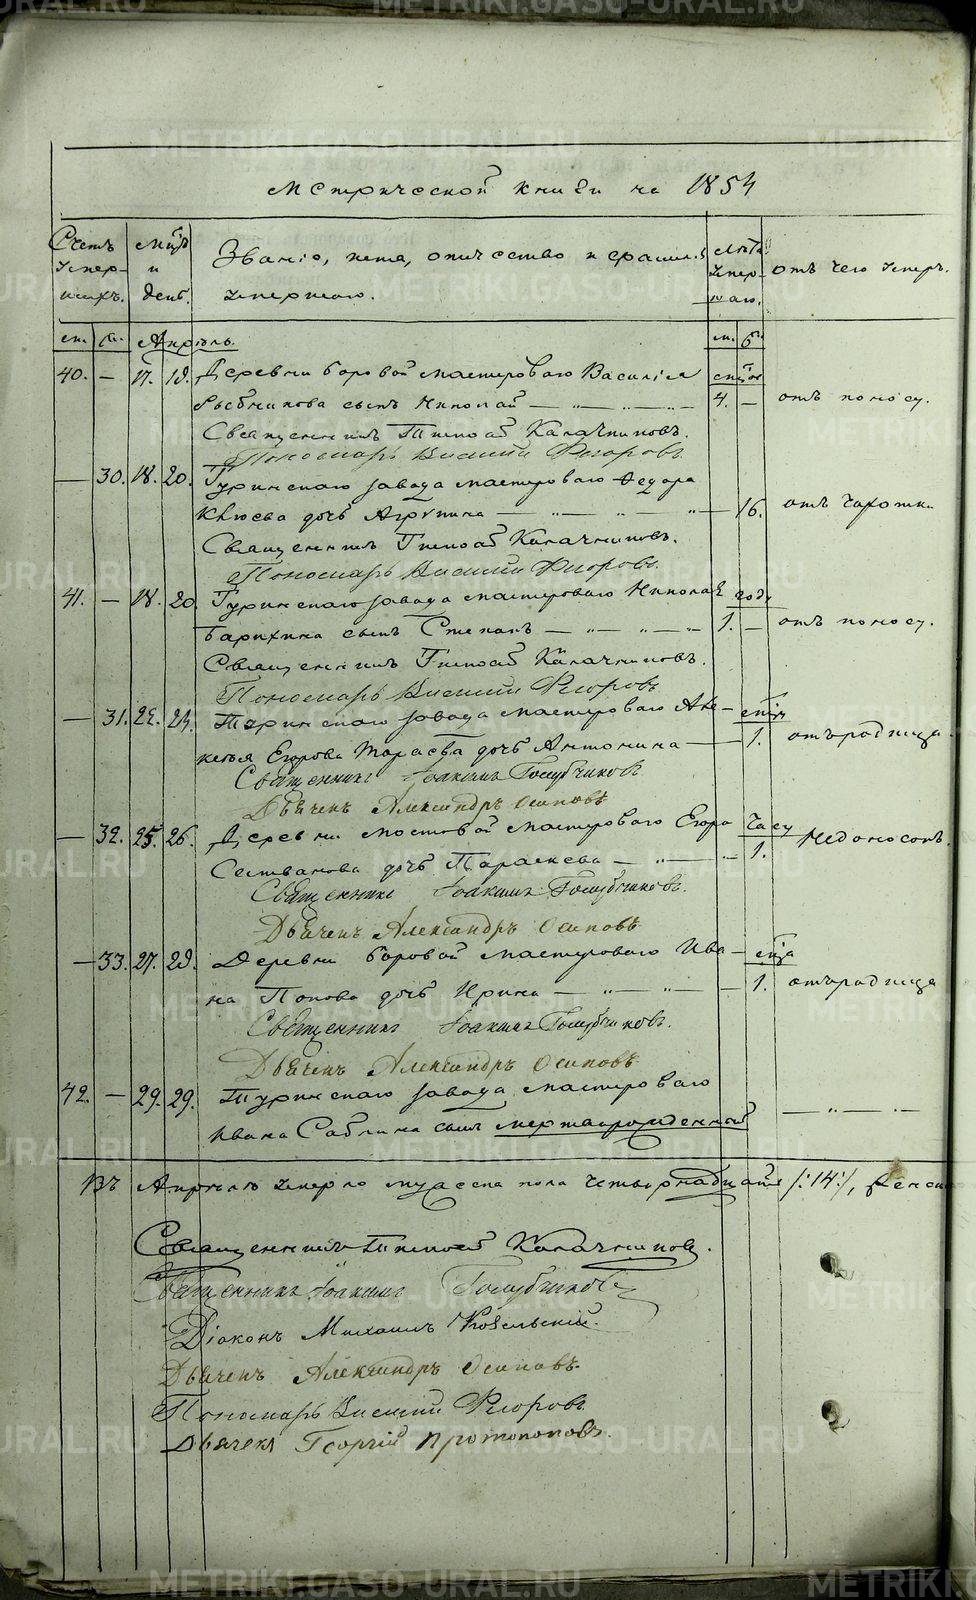 METRIKI.GASO-URAL.RU
Метрической книги на 1854
Счетъ умер-шихъ.
Мѣсяцъ и день.
Званіе, имя, отчество и фамилія умершаго.
Лѣта умер-шаго.
отъ чего умеръ.
м. ж. Апрѣль. м. ж.
40. — 17. 18. Деревни Боровой мастероваго Василія мѣсяц
Рыбникова сынъ Николай — „ — „ — 4. — отъ поносу.
Священникъ Тимоѳей Калачниковъ.
Пономарь Василій Флоровъ
— 30. 18. 20. Туринскаго завода мастероваго Ѳедора
Клюева дочь Агрупина — „ — „ — „ — 16. отъ чахотки
Священникъ Тимоѳей Калачниковъ.
Пономарь Василій Флоровъ.
41. — 18. 20. Туринскаго завода мастероваго Николая годъ
Барихина сынъ Степанъ — „ — „ — 1. — отъ поносу.
Священникъ Тимоѳей Калачниковъ.
Пономарь Василій Флоровъ
— 31. 22. 24. Туринскаго завода мастероваго
Егорова Тарасева дочь Антонина — 1. отъ родимца.
Священникъ Іоакимъ Голубчиковъ
Дьячекъ Александръ Осиповъ
— 32. 25. 26. Деревни Мостовой мастероваго Егора часу
Селиванова дочь Параскева — „ — 1. Недоносокъ.
Священникъ Іоакимъ Голубчиковъ.
Дьячекъ Александръ Осиповъ
— 33. 27. 28. Деревни Боровой мастероваго Ива-
на Попова дочь Ирина — „ — „ — 1. отъ родимца
Священникъ Іоакимъ Голубчиковъ.
Дьячекъ Александръ Осиповъ
42. — 29. 29. Туринскаго завода мастероваго
Ивана Саблина сынъ мертворожденный — „ —
Въ Апрѣлѣ умерло мужеска пола четырнадцать /:14:/, женска
Священникъ Тимоѳей Калачниковъ.
Священникъ Іоакимъ Голубчиковъ
Діаконъ Михаилъ Кобельскій.
Дьячекъ Александръ Осиповъ.
Пономарь Василій Флоровъ
Дьячекъ Георгій Протопоповъ.